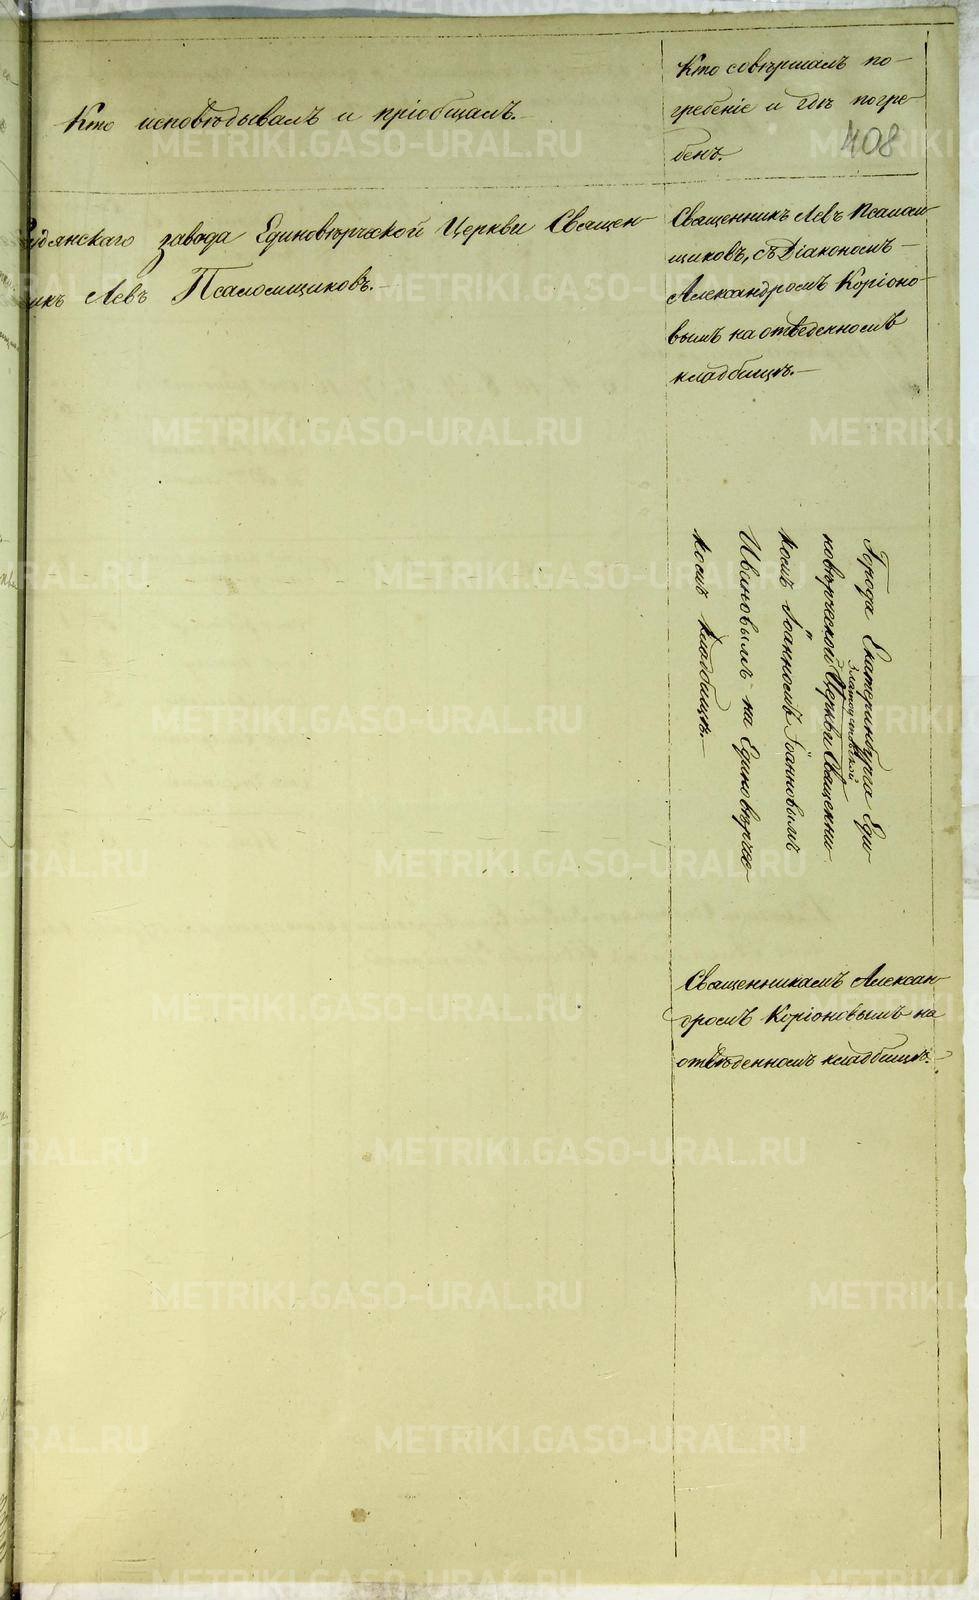 Кто исповѣдывалъ и пріобщалъ.
Кто совѣршалъ по-
гребеніе и гдѣ погре
бенъ.
408
удянскаго завода Единовѣрческой Церкви Священ-
икъ Левъ Псаломщиковъ.-
Священникъ Левъ Псалом-
щиковъ, съ Діакономъ-
Александромъ Коріоно-
вымъ на отведенномъ
кладбищѣ.-
Города Екатеринбурга Еди
новѣрческой Церкви Священни
Златоустовской
комъ Іоанномъ Іоанновымъ
Ивановымъ на Единовѣрчес
комъ кладбищѣ.-
Священникамъ Алексан-
дромъ Коріоновымъ на
отвѣденномъ кладбищѣ.-
METRIKI.GASO-URAL.RU